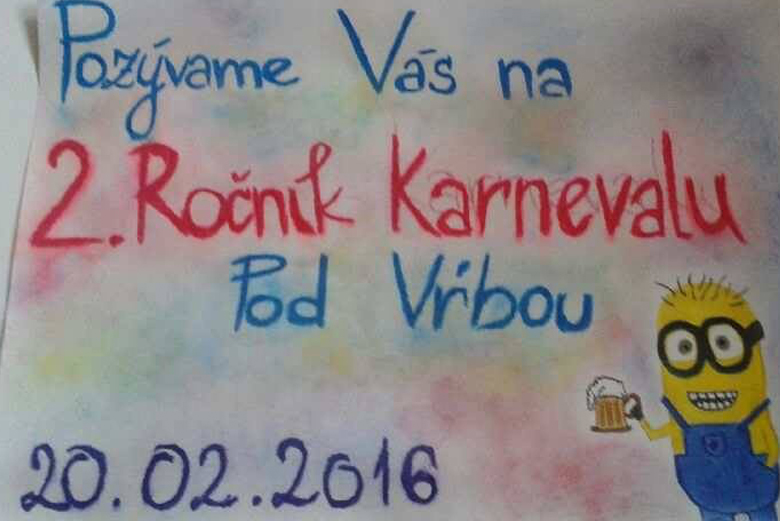 Pozývame Vás na
2. Ročník Karnevalu
Pod Vŕbou
20.02.2016